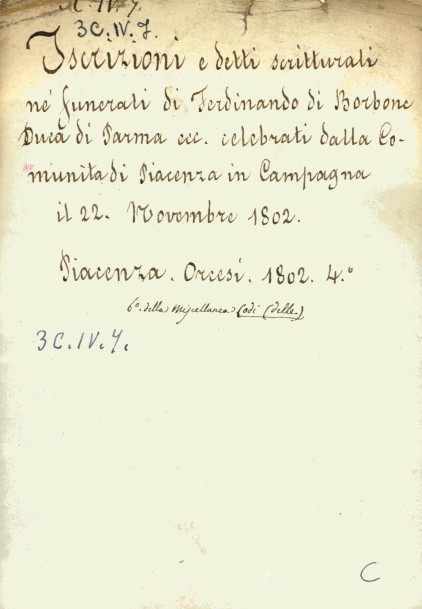 3C.IV.7.
3C.IV.7.
Iscrizioni e detti scritturali
ne' funerali di Ferdinando di Borbone
Duca di Parma ecc. celebrati dalla Co-
munita di Piacenza in Campagna
il 22. Novembre 1802.
Piacenza. Orcesi. 1802. 4.º
6º. della Miscellanea Codi (delle.)
3C.IV.7.
C